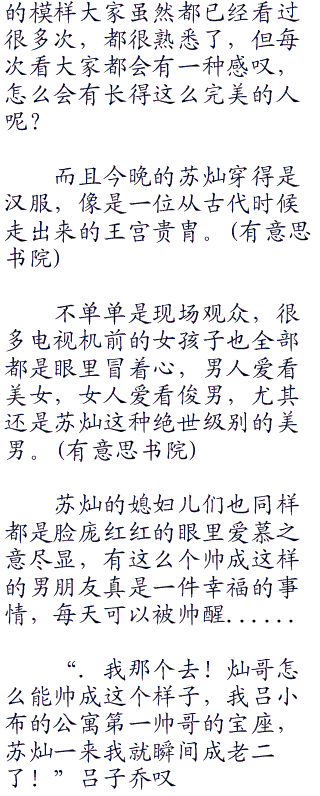 的模样大家虽然都已经看过
很多次，都很熟悉了，但每
次看大家都会有一种感叹，
怎么会有长得这么完美的人
呢？
而且今晚的苏灿穿得是
汉服，像是一位从古代时候
走出来的王宫贵胄。(有意思
书院)
不单单是现场观众，很
多电视机前的女孩子也全部
都是眼里冒着心，男人爱看
美女，女人爱看俊男，尤其
还是苏灿这种绝世级别的美
男。(有意思书院)
苏灿的媳妇儿们也同样
都是脸庞红红的眼里爱慕之
意尽显，有这么个帅成这样
的男朋友真是一件幸福的事
情，每天可以被帅醒......
“．我那个去！灿哥怎
么能帅成这个样子，我吕小
布的公寓第一帅哥的宝座，
苏灿一来我就瞬间成老二
了！”吕子乔叹